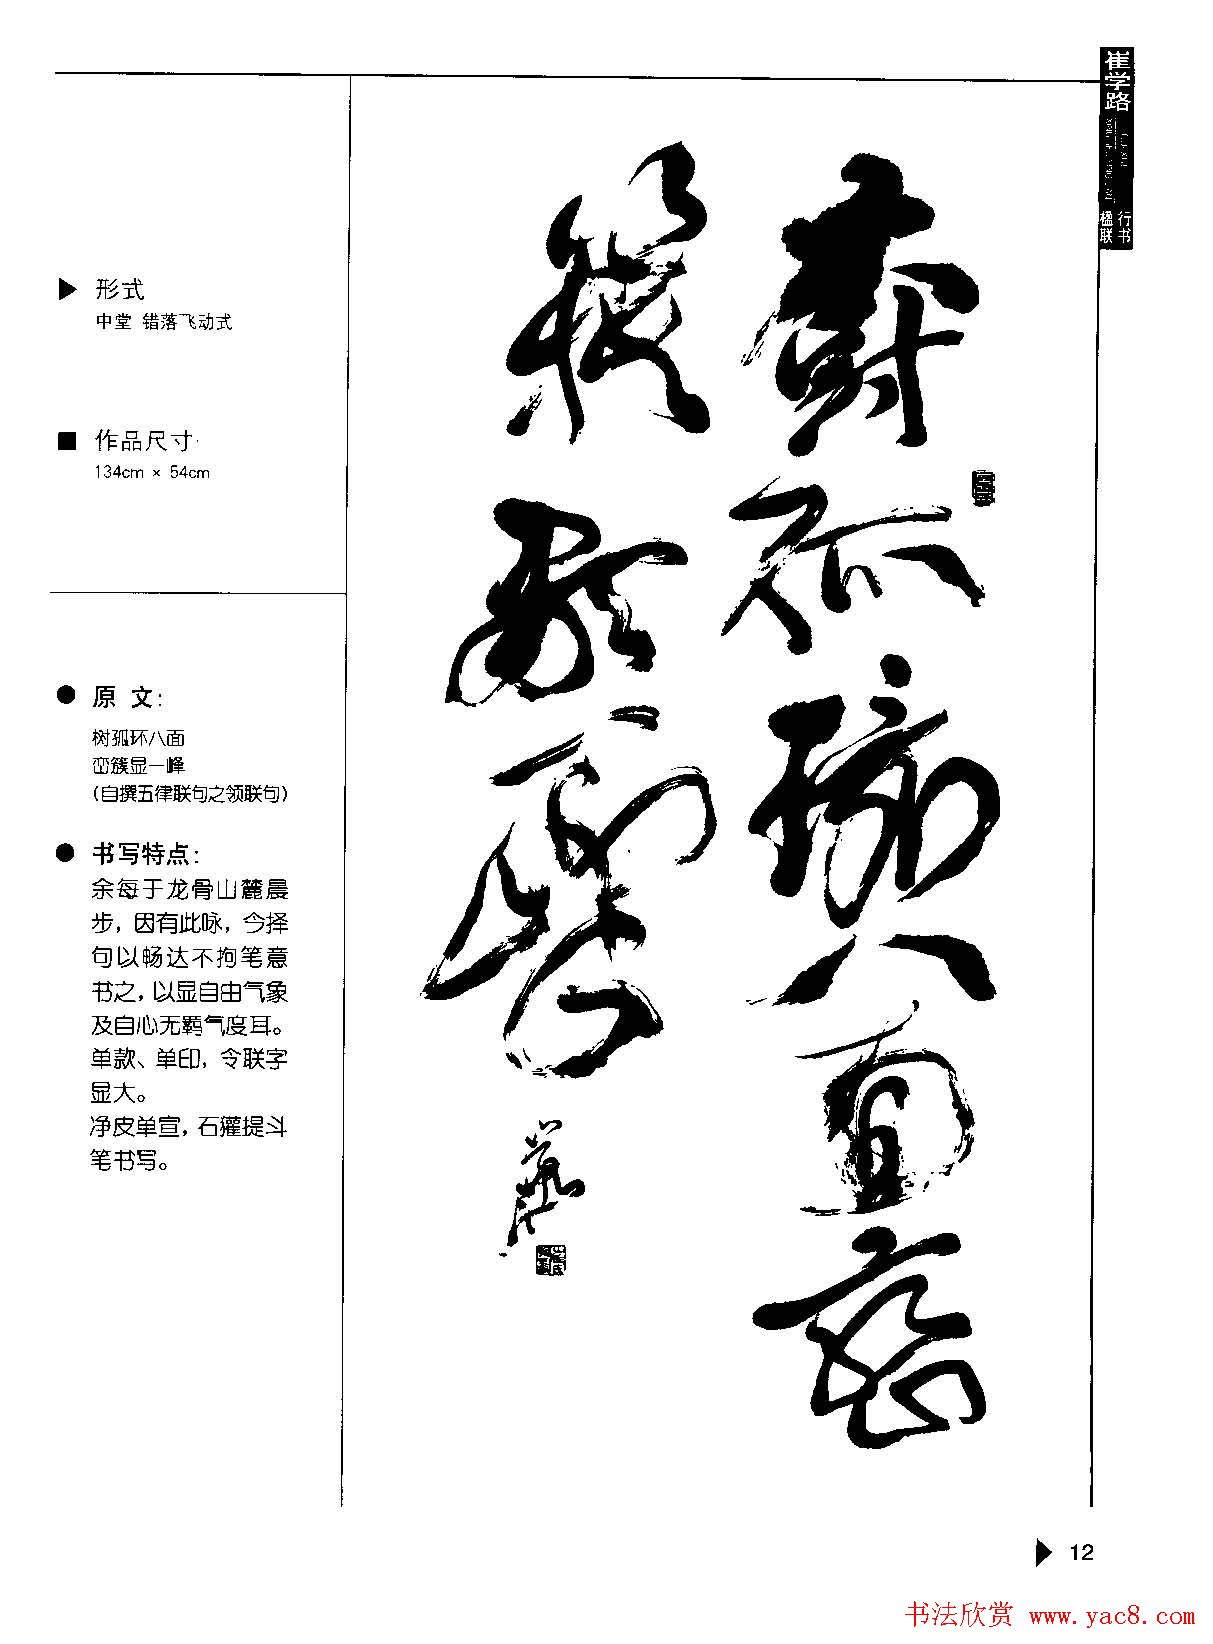 崔学路
行书
楹联
形式
中堂 错落飞动式
作品尺寸
134cm × 54cm
原 文：
树孤环八面
峦簇显一峰
（自撰五律联句之领联句）
书写特点：
余每于龙骨山麓晨
步，因有此咏，今择
句以畅达不拘笔意
书之，以显自由气象
及自心无羁气度耳。
单款、单印，令联字
显大。
净皮单宣，石獾提斗
笔书写。
树孤环八面峦
簇显一峰
12
书法欣赏 www.yac8.com